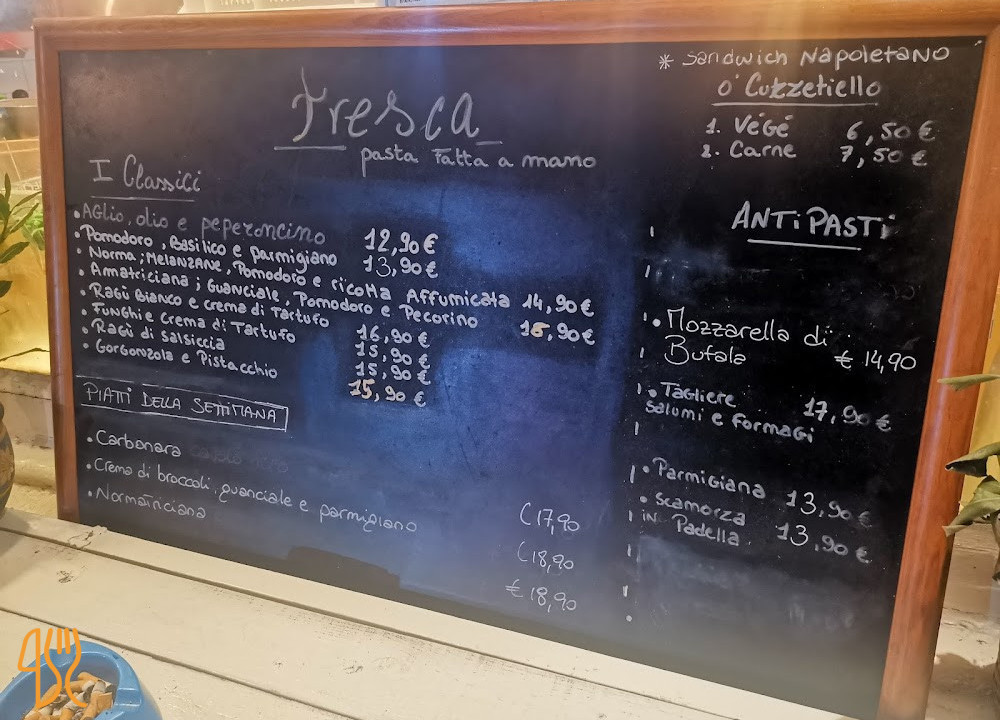 Fresca
pasta Fatta a mano
I Classici
• AGlio, olio e peperoncino 12,90 €
• Pomodoro, Basilico e parmigiano 13,90 €
• Norma; MELANZANE, Pomodoro e ricotta Affumicata 14,90 €
• Amatriciana; Guanciale, Pomodoro e Pecorino 15,90 €
• Ragù Bianco e crema di Tartufo 16,90 €
• Funghi e Crema di Tartufo 15,90 €
• Ragù di salsiccia 15,90 €
• Gorgonzola e Pistacchio 15,90 €
PIATTI DELLA SETTIMANA
• Carbonara € 17,90
• Crema di broccoli, guanciale e parmigiano € 18,90
• Normatriciana € 18,90
* Sandwich Napoletano
O' Cuzzetiello
1. Végé 6,50 €
2. Carne 7,50 €
ANTIPASTI
• Mozzarella di
Bufala € 14,90
• Tagliere 17,90 €
salumi e formagi
• Parmigiana 13,90 €
• Scamorza
in Padella 13,90 €